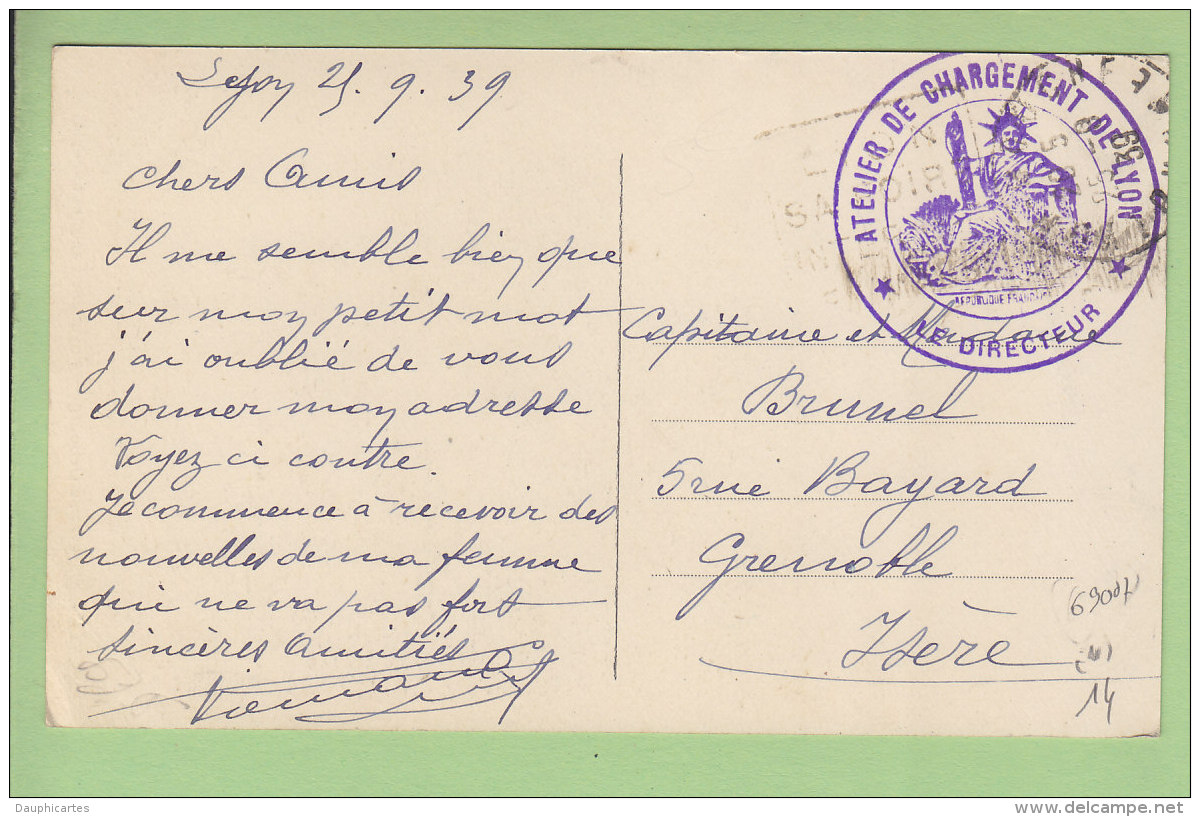 21. 9. 39
chers Amis
Il me semble bien que
sur mon petit mot
j'ai oublié de vous
donner mon adresse
Voyez ci contre.
Je commence à recevoir des
nouvelles de ma femme
qui ne va pas fort
Sincères Amitiés
ATELIER DE CHARGEMENT DE LYON
RÉPUBLIQUE FRANÇAISE
LE DIRECTEUR
Capitaine et Madame
Brunel
5 rue Bayard
Grenoble
Isère
69007
14
Dauphicartes
www.delcampe.net